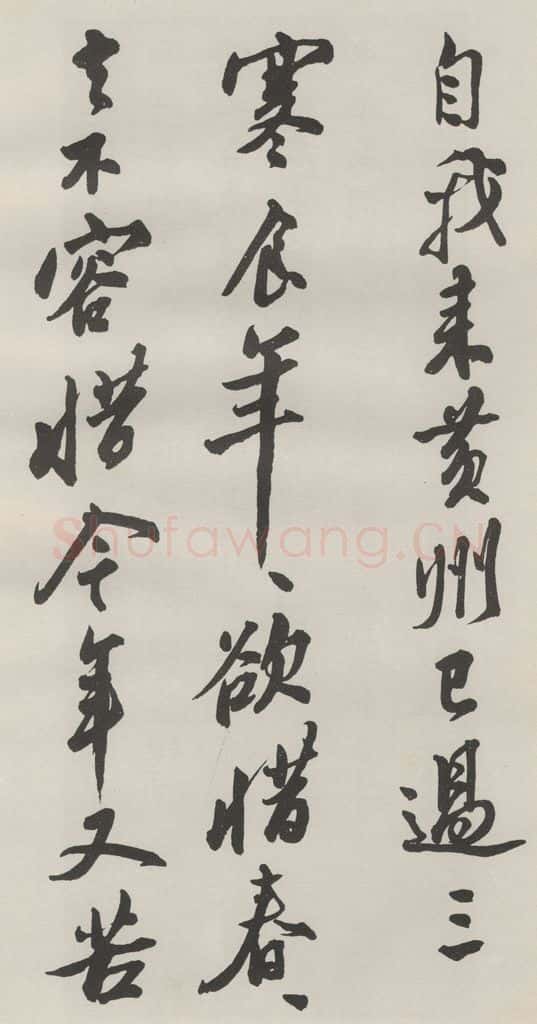 自我来黄州已過三
寒食年、欲惜春、
去不容惜今年又苦
Shufawang.CN